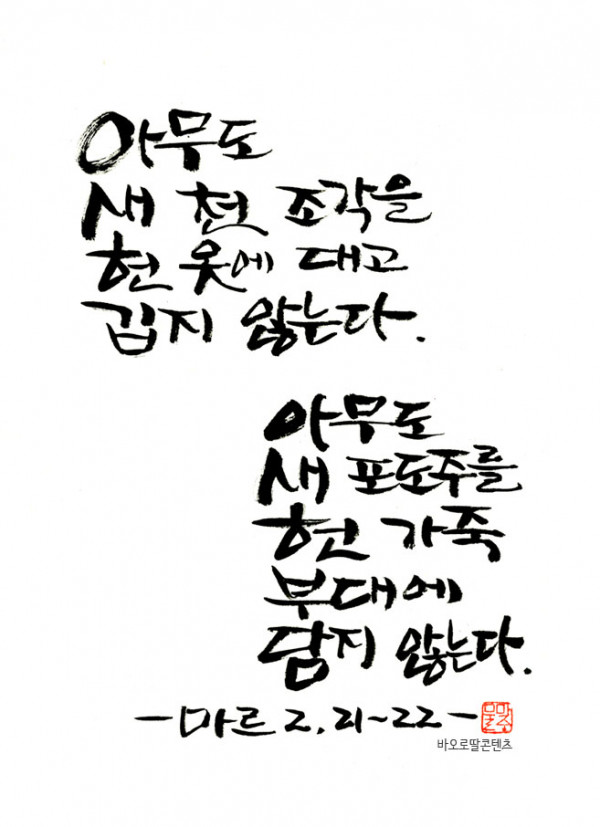 아무도
새 천 조각을
헌 옷에 대고
깁지 않는다.
아무도
새 포도주를
헌 가죽
부대에
담지 않는다.
-마르 2, 21~22-
바오로딸콘텐츠